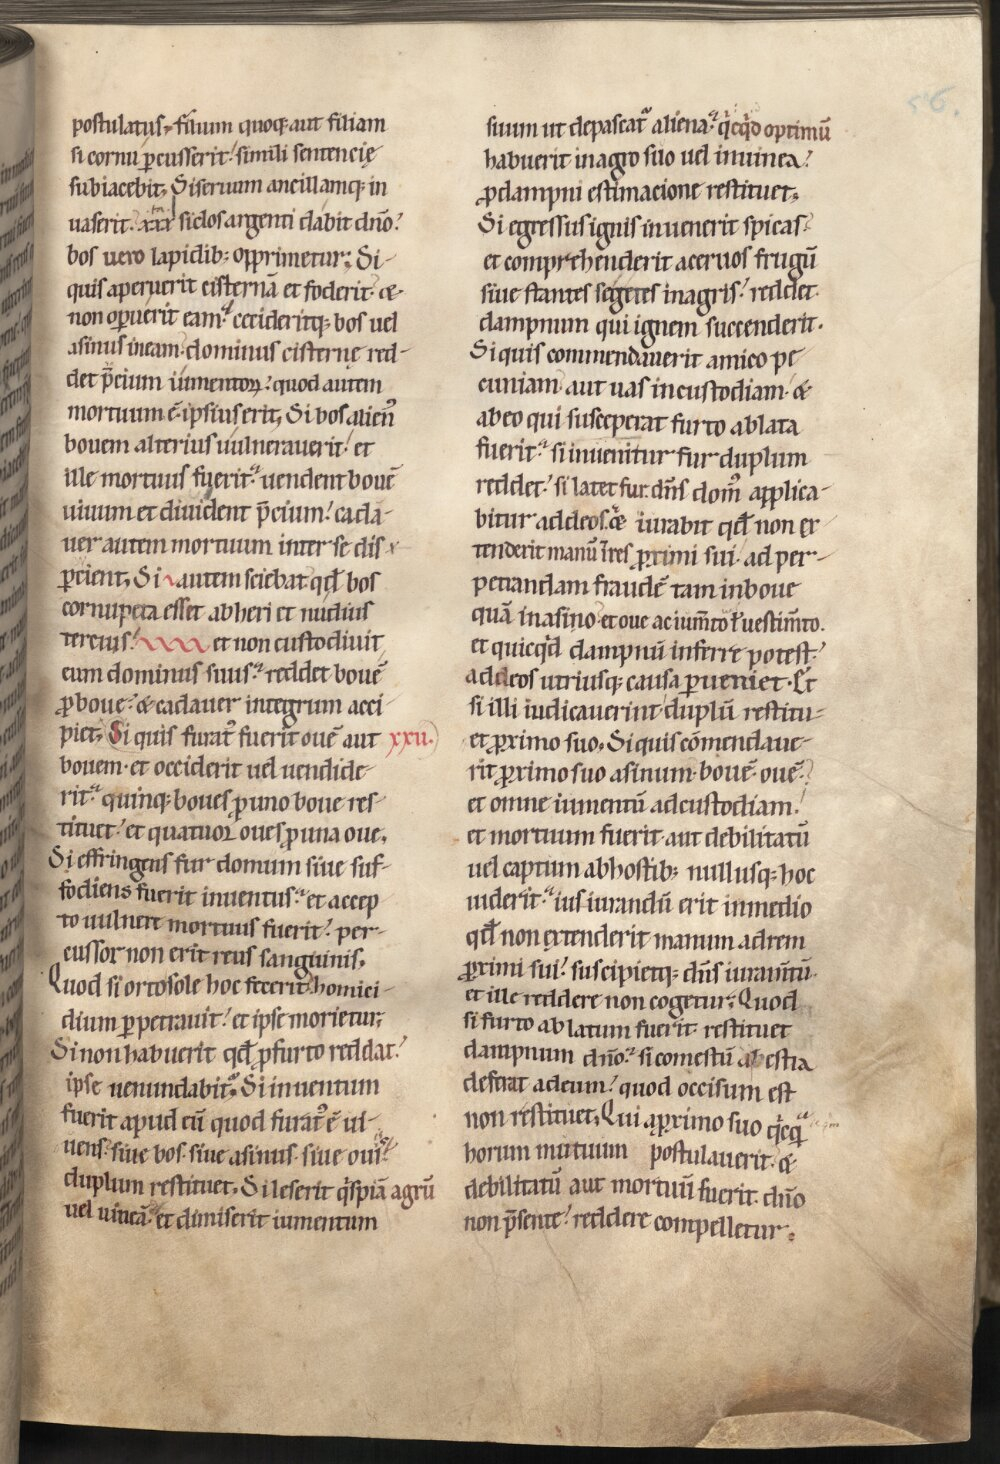 postulatus; filium quoq; aut filiam
si cornu ꝑcusserit. simili sentencię
subiacebit; Si seruum ancillamq; in
uaserit. xxx siclos argenti dabit dn̄o.
bos uero lapidib; opprimetur; Si
quis aperuerit cisternā et foderit. &
non oꝑuerit eam. cecideritq; bos uel
asinus in eam. dominus cisternę red-
det p̄cium iumentoꝝ. quod autem
mortuum ē. ipsius erit; Si bos alien᷒
bouem alterius uulnerauerit. et
ille mortuus fuerit. uendent bouē
uiuum et diuident p̄cium. cadā-
uer autem mortuum inter se dis-
ꝑcient; Si autem sciebat qđ bos
cornupeta esset ab heri et nudius
tercius. et non custodiuit
eum dominus suus. reddet bouē
ꝓ boue. & cadauer integrum acci-
piet; Si quis furat᷒ fuerit ouē aut xxii.
bouem. et occiderit uel uendide-
rit. quinq; boues ꝓ uno boue res-
tituet. et quatuor oues ꝓ una oue.
Si effringens fur domum siue suf-
fodiens fuerit inuentus. et accep
to uulnere mortuus fuerit. per-
cussor non erit reus sanguinis.
Quod si orto sole hoc fecerit. homici-
dium ꝑpetrauit. et ipse morietur;
Si non habuerit qđ ꝓ furto reddat.
ipse uenundabit᷒. Si inuentum
fuerit apud eū quod furat᷒ ē ui-
uens. siue bos. siue asinus. siue ouis.
duplum restituet; Si leserit q̇spiā agrū
uel uineā. et dimiserit iumentum
suum ut depascat᷒ aliena. q̇cq̇d optimū
habuerit in agro suo uel in uinea.
ꝓ dampni estimacione restituet;
Si egressus ignis inuenerit spicas.
et comprehenderit aceruos frugū
siue stantes segetes in agris. reddet
dampnum qui ignem succenderit.
Si quis commendauerit amico pe
cuniam aut uas in custodiam. &
ab eo qui susceperat furto ablata
fuerit. si inuenitur fur duplum
reddet. si latet fur. dn̄s dom᷒ applica-
bitur ad deos. & iurabit qđ non ex
tenderit manū ī res ꝓximi sui. ad per-
petrandam fraudē tam in boue
quā in asino. et oue ac ium̄to ł uestim̄to.
et quicq̇d dampnū inferre potest.
ad deos utriusq; causa ꝑueniet. Et
si illi iudicauerint. duplū restitu-
et ꝓximo suo; Si quis cōmendaue-
rit ꝓximo suo asinum. bouē. ouē.
et omne iumentū ad custodiam.
et mortuum fuerit. aut debilitatū
uel captum ab hostib; nullusq; hoc
uiderit. ius iurandū erit in medio
qđ non extenderit manum ad rem
ꝓximi sui. suscipietq; dn̄s iuram̄tū.
et ille reddere non cogetur; Quod
si furto ablatum fuerit. restituet
dampnum dn̄o. si comestū a bestia
deferat ad eum. quod occisum est
non restituet; Qui a ꝓximo suo q̇cq̄
horum mutuum postulauerit. &
debilitatū aut mortuū fuerit. dn̄o
non p̄sente. reddere compelletur.